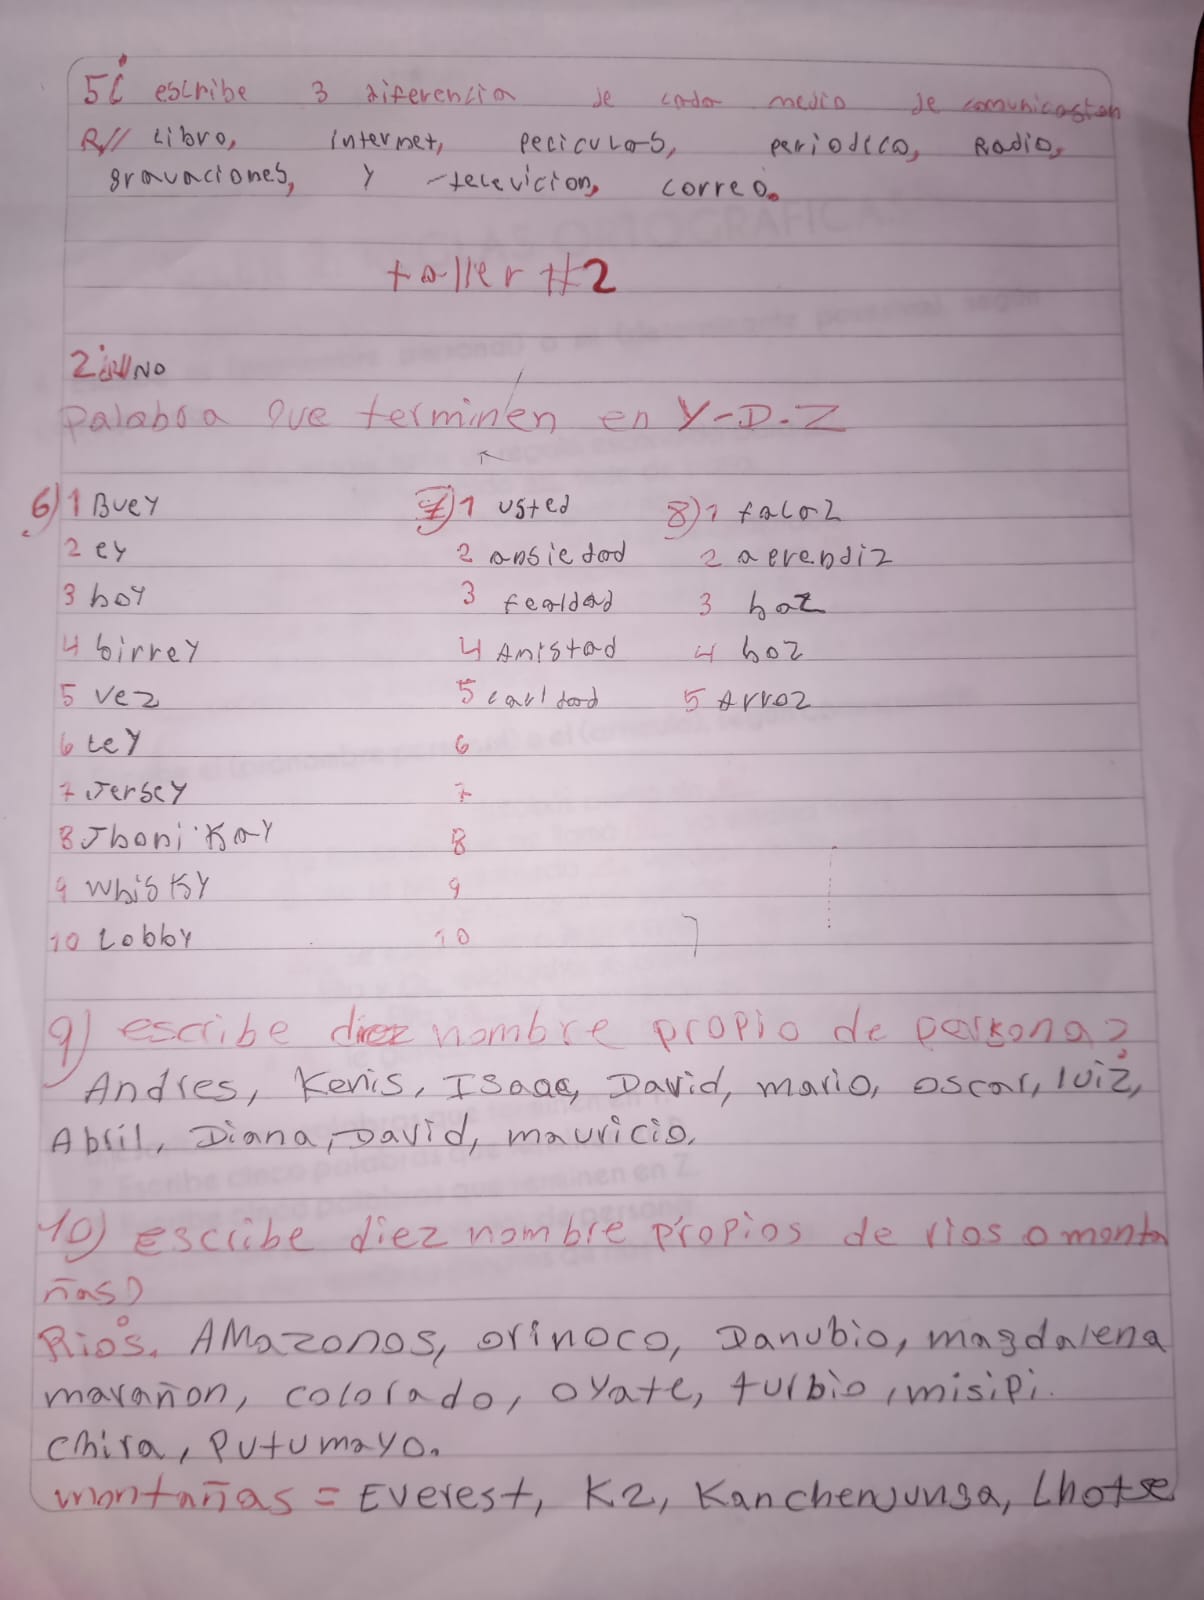 5¿ escribe 3 diferencia de cada medio de comunicaston
R// Libro, internet, peciculas, periodico, Radio,
gravaciones, y televicion, correo.
taller #2
NO
palabra que terminen en Y-D-Z
6) 1 Buey 7) 1 usted 8) 1 falaz
2 ey 2 ansiedad 2 aprendiz
3 hoy 3 fealdad 3 haz
4 birrey 4 Amistad 4 boz
5 vez 5 5 Arroz
6 Ley 6
7 Jersey 7
8 Jhoni Kay 8
9 Whisky 9
10 Lobby 10
9) escribe diez nombre propio de persona?
Andres, Kenis, Isaac, David, mario, oscar, luiz,
Abril, Diana, David, mauricio.
10) escribe diez nombre propios de rios o monta
ñas)
Rios. AMazonos, orinoco, Danubio, magdalena
marañon, colorado, oyate, turbio, misipi.
chira, Putumayo.
montañas = Everest, K2, Kanchenjunga, Lhotse